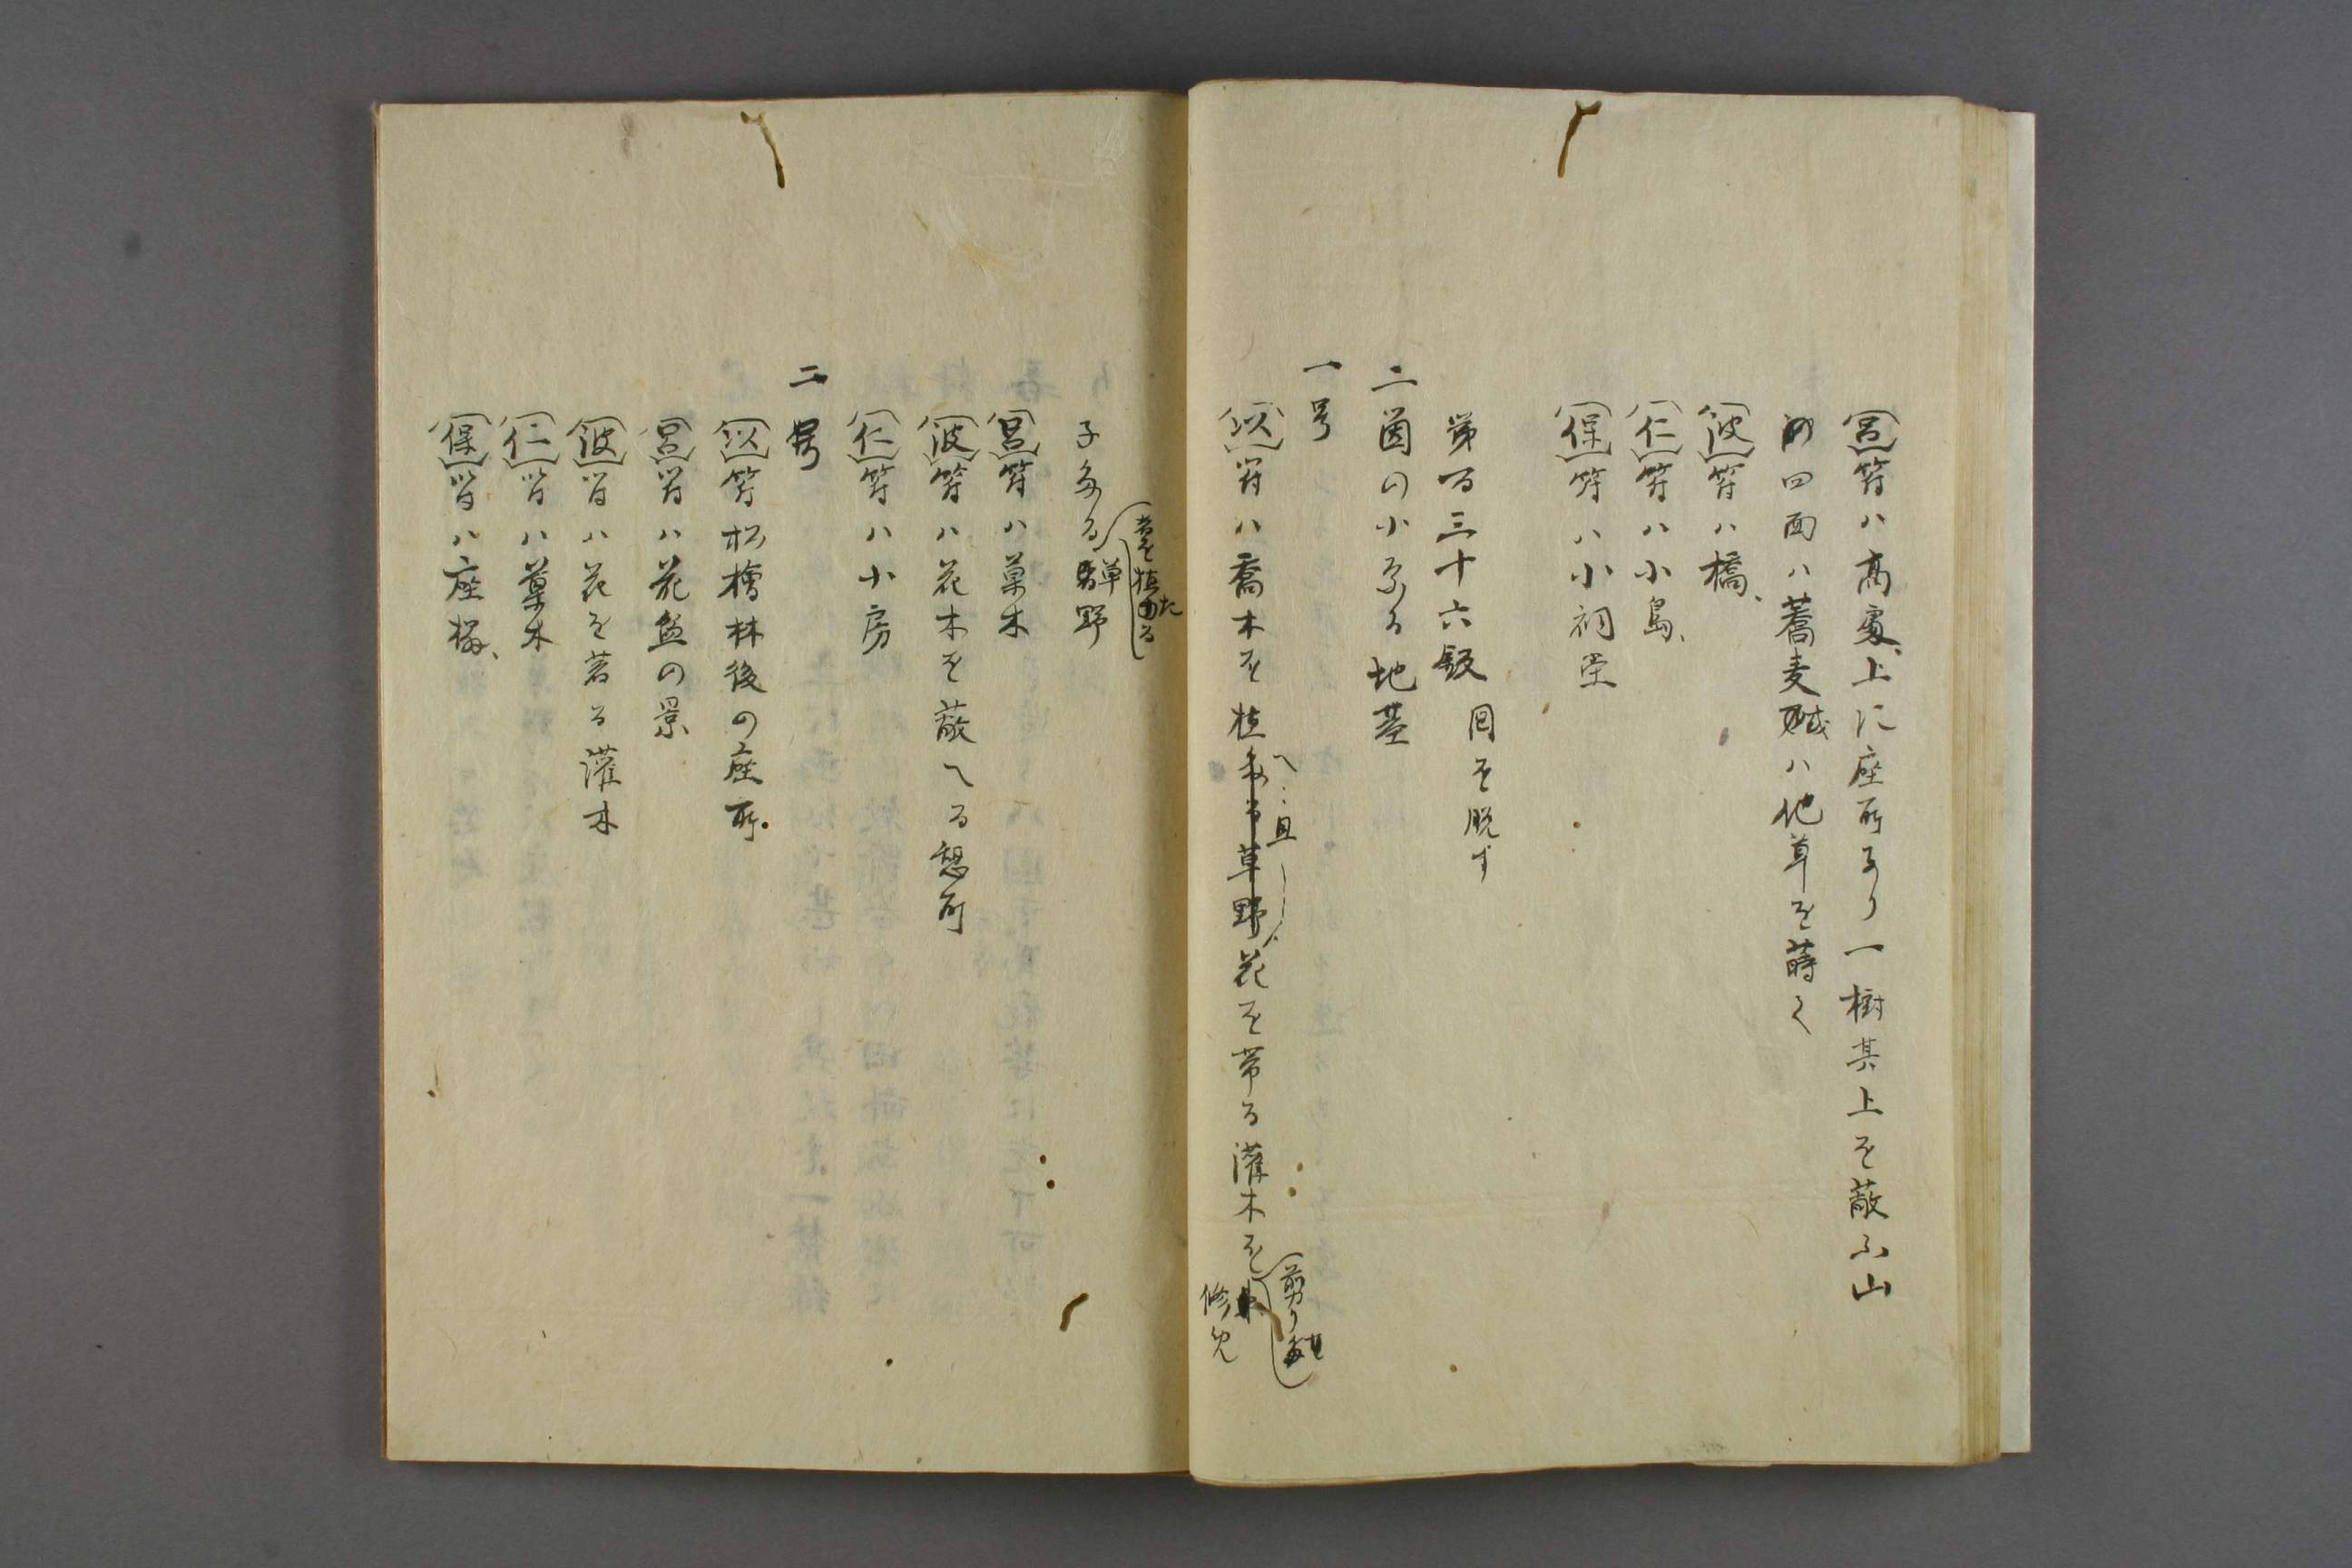 (呂)符ハ高處、上に座所あり一樹其上を蔽ふ山
の四面ハ蕎麦或ハ他草を蒔く
(波)符ハ橋、
(仁)符ハ小島、
(保)符ハ小祠堂
第百三十六段 図を脱す
二箇の小なる地基
一号
(以)符ハ喬木を植へ、且花を帯る灌木を
(剪り
草野
(呂)符ハ菓木
(波)符ハ花木を蔽へる憩所
(仁)符ハ小房
二号
(以)符松檜林後の座所.
(呂)符ハ花盆の景
(波)符ハ花を着る灌木
(仁)符ハ菓木
(保)符ハ座榻、